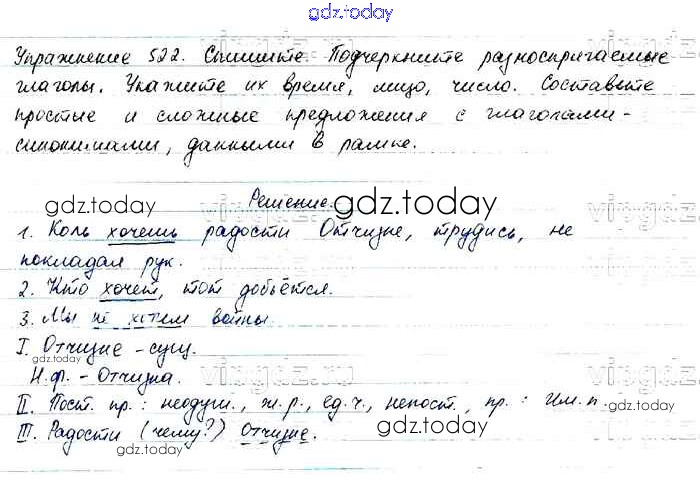 gdz.today
Упражнение 522. Спишите. Подчеркните разноспрягаемые
глаголы. Укажите их время, лицо, число. Составьте
простые и сложные предложения с глаголами-
синонимами, данными в рамке.
Решение.
gdz.today
gdz.today
1. Коль хочешь радости Отчизне, трудись, не
покладая рук.
2. Кто хочет, тот добьётся.
gdz.today
gdz.today
3. Мы не хотим войны.
I. Отчизне – сущ.
gdz.today
Н.ф. – Отчизна.
vipgdz.ru
II. Пост. пр.: неодуш., ж.р., ед.ч., непост., пр.: Им.п.
gdz.today
III. Радости (чему?) Отчизне.
gdz.today
gdz.today